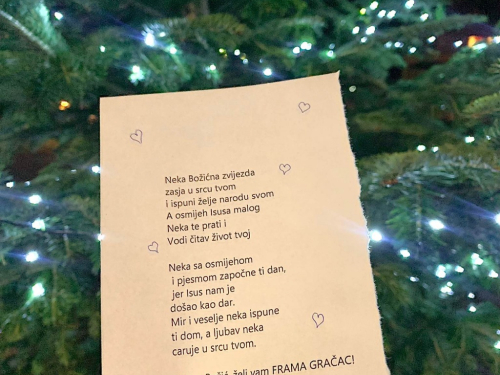 Neka Božićna zvijezda
zasja u srcu tvom
i ispuni želje narodu svom
A osmijeh Isusa malog
Neka te prati i
Vodi čitav život tvoj
Neka sa osmijehom
i pjesmom započne ti dan,
jer Isus nam je
došao kao dar.
Mir i veselje neka ispune
ti dom, a ljubav neka
caruje u srcu tvom.
Božić želi vam FRAMA GRAČAC!